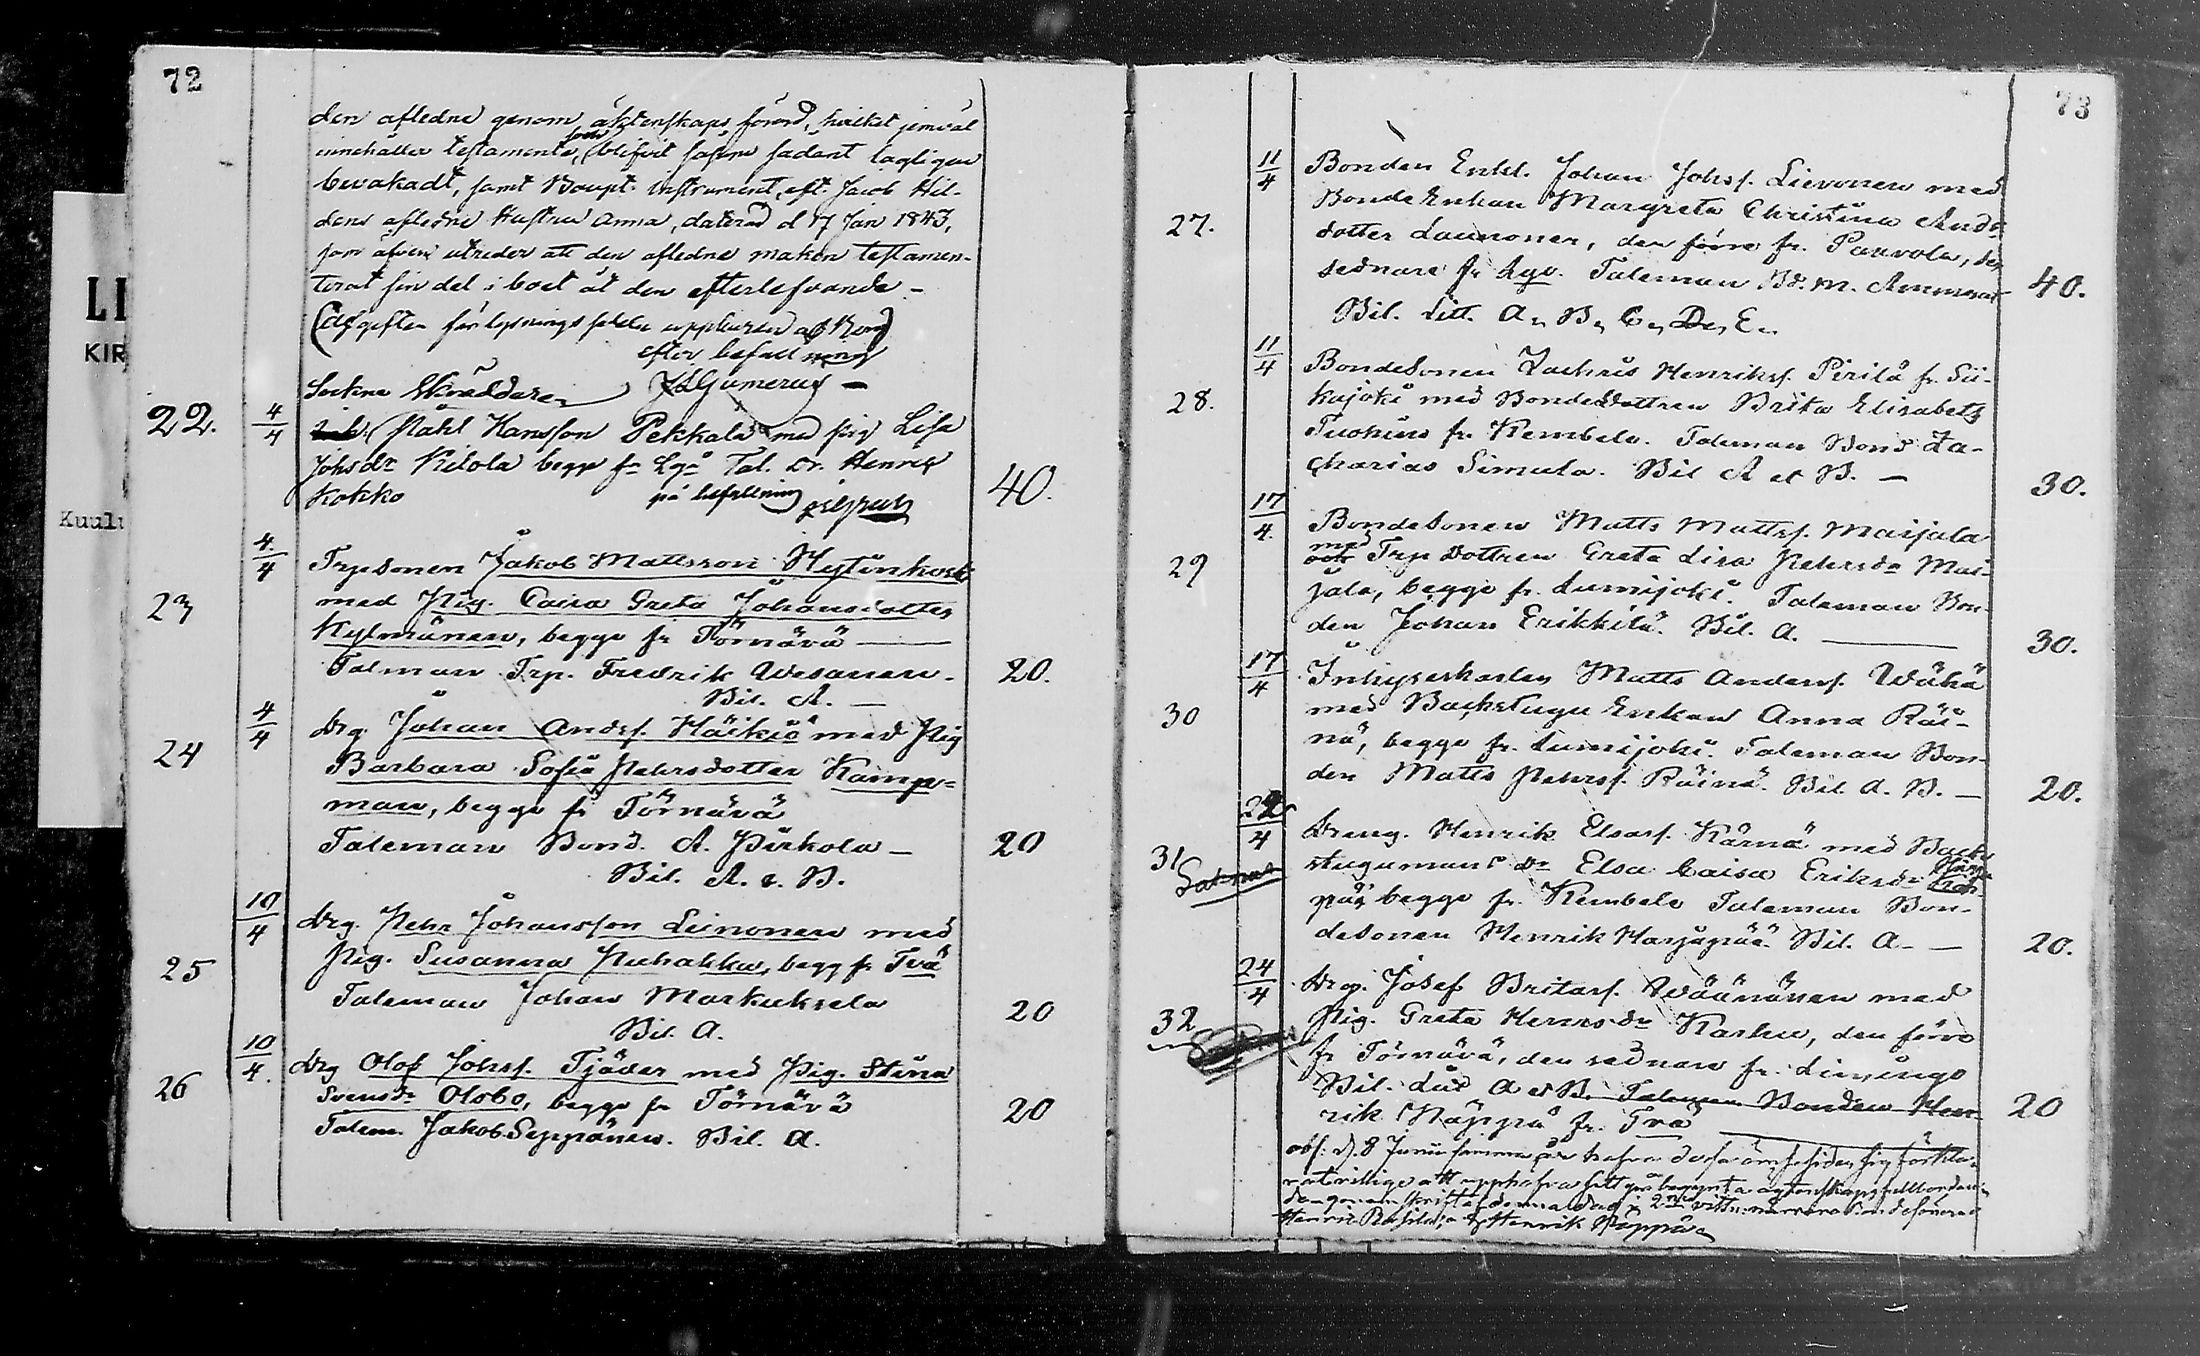 72
den aflednd genom äktenskaps förord, hvilket jemväl
innehåller testamente, som blifvit såsom sådant lagligen
bevakadt, samt Boupt. instrument eft. Jacob Hil-
dens aflednd Hustru Anna, daterad d 17 Jan 1843,
som äfven utreder att den aflednd makan testamen-
terat sin del i boet åt den efterlefvande –
(Afgiften för lysnings sedeln uppburen af Kong)
efter befallning
Sockne Skräddaren JLGumerus –
22. 4/4 Ståhl Hansson Pekkala med pig Lisa
Johsdr Kilola begge fr Lgo Tal. Dr. Henric
Kokko på befallning 40.
23 4/4 Trpsonen Jakob Mattsson Heitinkoski
med Pig. Caisa Greta Johansdotter
Kylmänen, begge fr Törnävä –
Talman Trp. Fredrik Wesanen. 20.
Bil. A. –
24 4/4 Drg. Johan Andsf. Häikiö med Pig
Barbara Sofia Pehrsdotter Kamp=
man, begge fr Törnävä
Taleman Bond. A. Pirkola – 20
Bil. A. & B.
25 10/4 Drg. Pehr Johansson Leinonen med
Pig. Susanna Puhakka, begg fr Tvä
Taleman Johan Markuksela 20
Bil. A.
26 10/4 Drg Olof Johsf. Tjäder med Pig. Stina
Svensdr Olsbo, begge fr Törnävä 20
Talem. Jakob Seppänen. Bil. A.
73
11/4 Bonden Enkl. Johan Johsf. Lievonen med
27. BondeEnkan Margreta Christina Ands-
dotter Launonen, den förre fr. Paavola, den
sednare fr Lgo. Taleman Bd. m. 40.
Bil. Litt. A, B, C, D, E.
11/4 BondeSonen Zachris Henriksf. Pirilä fr. Sii-
28. kajoki med BondeDottren Brita Elisabeth
Tuohino fr. Kembele. Taleman Bond Za-
charias Simula. Bil A et B. – 30.
17/4 BondeSonen Matts Mattsf. Maijala
29 med Trp Dottren Greta Lisa Pehrsdr Mai-
jala, begge fr. Lumijoki. Taleman Bon-
den Johan Erikkilä. Bil. A. – 30.
17/4 Inhyseskarlen Matts Andersf. Wähä
30 med Backstugu Enkan Anna Räi-
nä, begge fr. Lumijoki. Taleman Bon-
den Matts Pehrsf. Räinä. Bil. A. B. – 20.
22/4 Dreng. Henrik Elsasf. Kärnä med Back-
31 stugumans Dr Elsa Caisa Eriksdr
pää, begge fr. Kembele Taleman Bon-
desonen Henrik Harjupää. Bil. A – 20.
24/4 Drg. Josef Britasf. Wäänänen med
32 Pig. Greta Henrsdr Karhu, den förre
fr Törnävä, den sednare fr. Limingo
Bil. Litt A et B. Taleman Bonden Hen- 20
rik Näppä fr. Tvä
obs: d. 8 Junii samma år hafva dessa ömse sidor sig förkla-
rat villige att upphäfva sitt påbegynta ägtenskaps fullbordan
Henric & Henrik Näppä